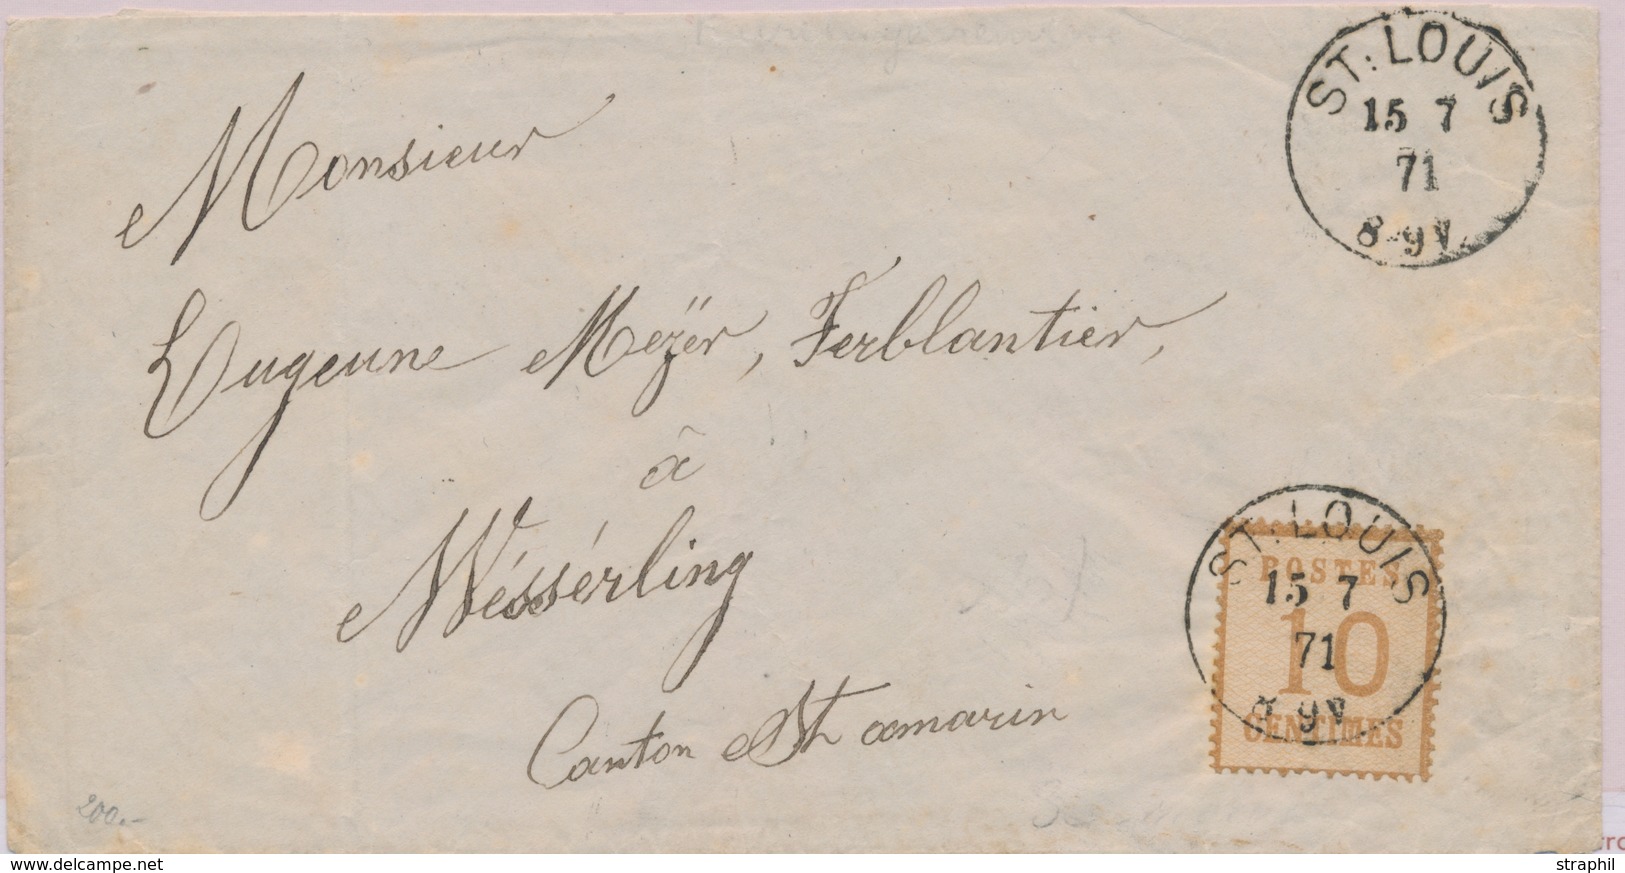 ST. LOUIS
15 7
71
8-9V.
Monsieur
Eugenne Meÿer, Ferblantier,
à
Wéssérling
Canton St amarin
ST. LOUIS
15 7
71
9V.
POSTES
10
CENTIMES
200.-
www.delcampe.net
straphil